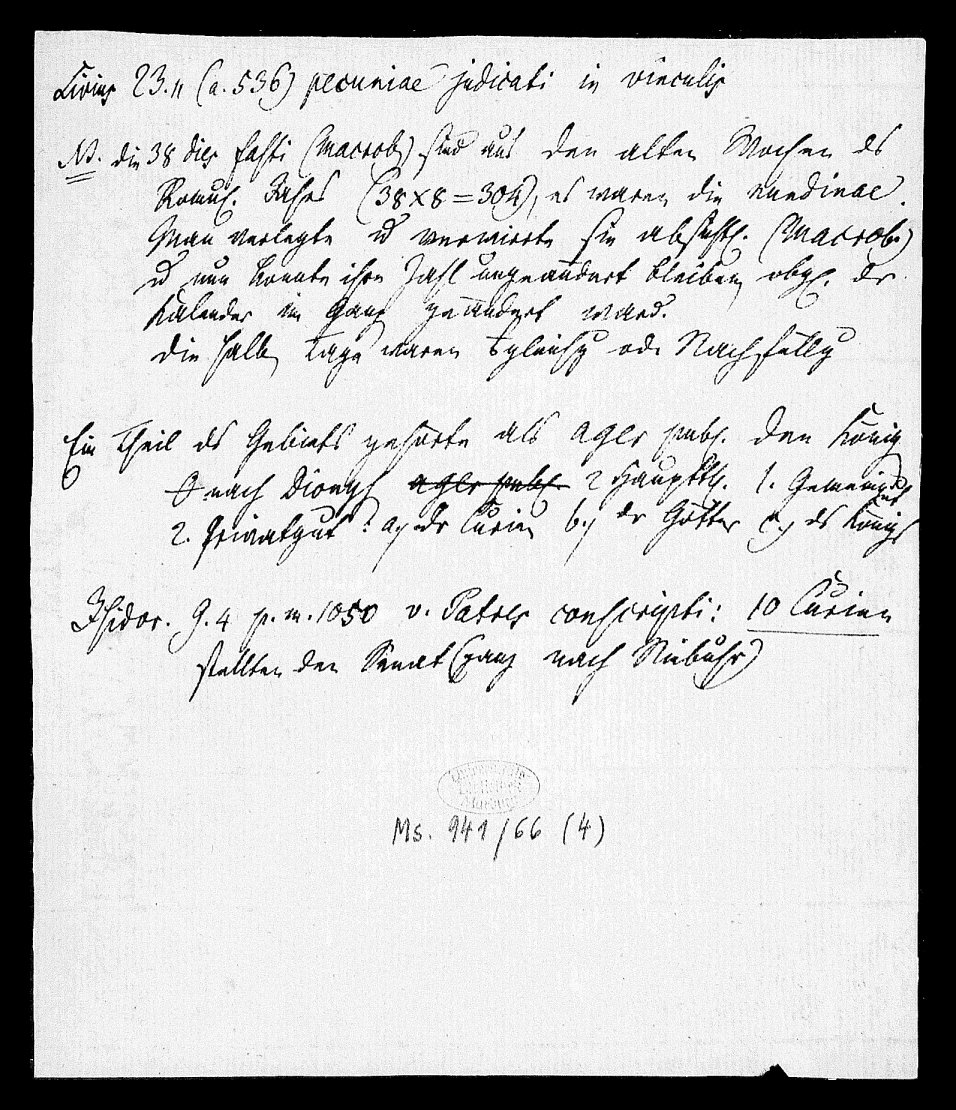 Livius 23.11 (a. 536) pecuniae judicati in vinculis
NB. die 38 dies fasti (Macrob) sind aus den alten Wochen ds
Romul. Jahrs (38x8=304), es waren die nundinae.
Man verlegte u verwirrte sie absichtl. (Macrob.)
u nun konnte ihre Zahl ungeändert bleiben, obgl. der
Kalender im Ganz geändert ward.
die halb Tage waren ode Nach
Ein Theil ds Gebiets gehörte als ager publ. den König
nach Dionys ager publ. 2 Hauptth. 1. Gemeingut
2. Privatgut: a, der Curien b., dr Götter c., ds Königs
Isidor. 9.4 p.m. 1050 v. Patres conscripti: 10 Curien
stellten den Senat (ganz nach Niebuhr)
Ms. 941/66 (4)